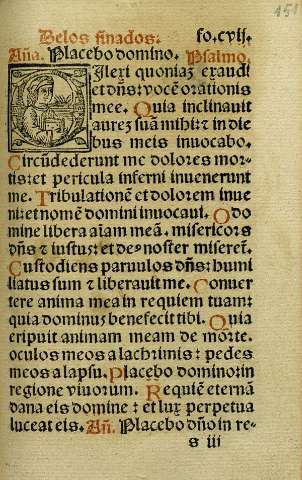 151
Delos finados: fo.cvij.
Aña. Placebo domino. Psalmo.
Dilexi quoniaz̃ exaudi
et dñs: vocẽ orationis
mee. Quia inclinauit
aureȝ suã mihi: ⁊ in die
bus meis inuocabo.
Circũdederunt me dolores mor-
tis: et pericula inferni inuenerunt
me. Tribulationẽ et dolorem inue
ni: et nomẽ domini inuocaui. O do
mine libera aĩam meã. misericors
dñs ⁊ iustus: et deꝰ noster misereť.
Custodiens paruulos dñs: humi
liatus sum ⁊ liberauit me. Conuer
tere anima mea in requiem tuam:
quia dominus benefecit tibi. Quia
eripuit animam meam de morte.
oculos meos a lachrimis: pedes
meos a lapsu. Placebo domino: in
regione viuorum. Requiẽ eternã
dona eis domine: et lux perpetua
luceat eis. Añ. Placebo dño in re-
s iii